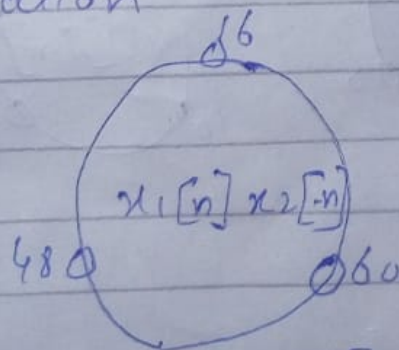 56
x1[n] x2[-n]
48
60